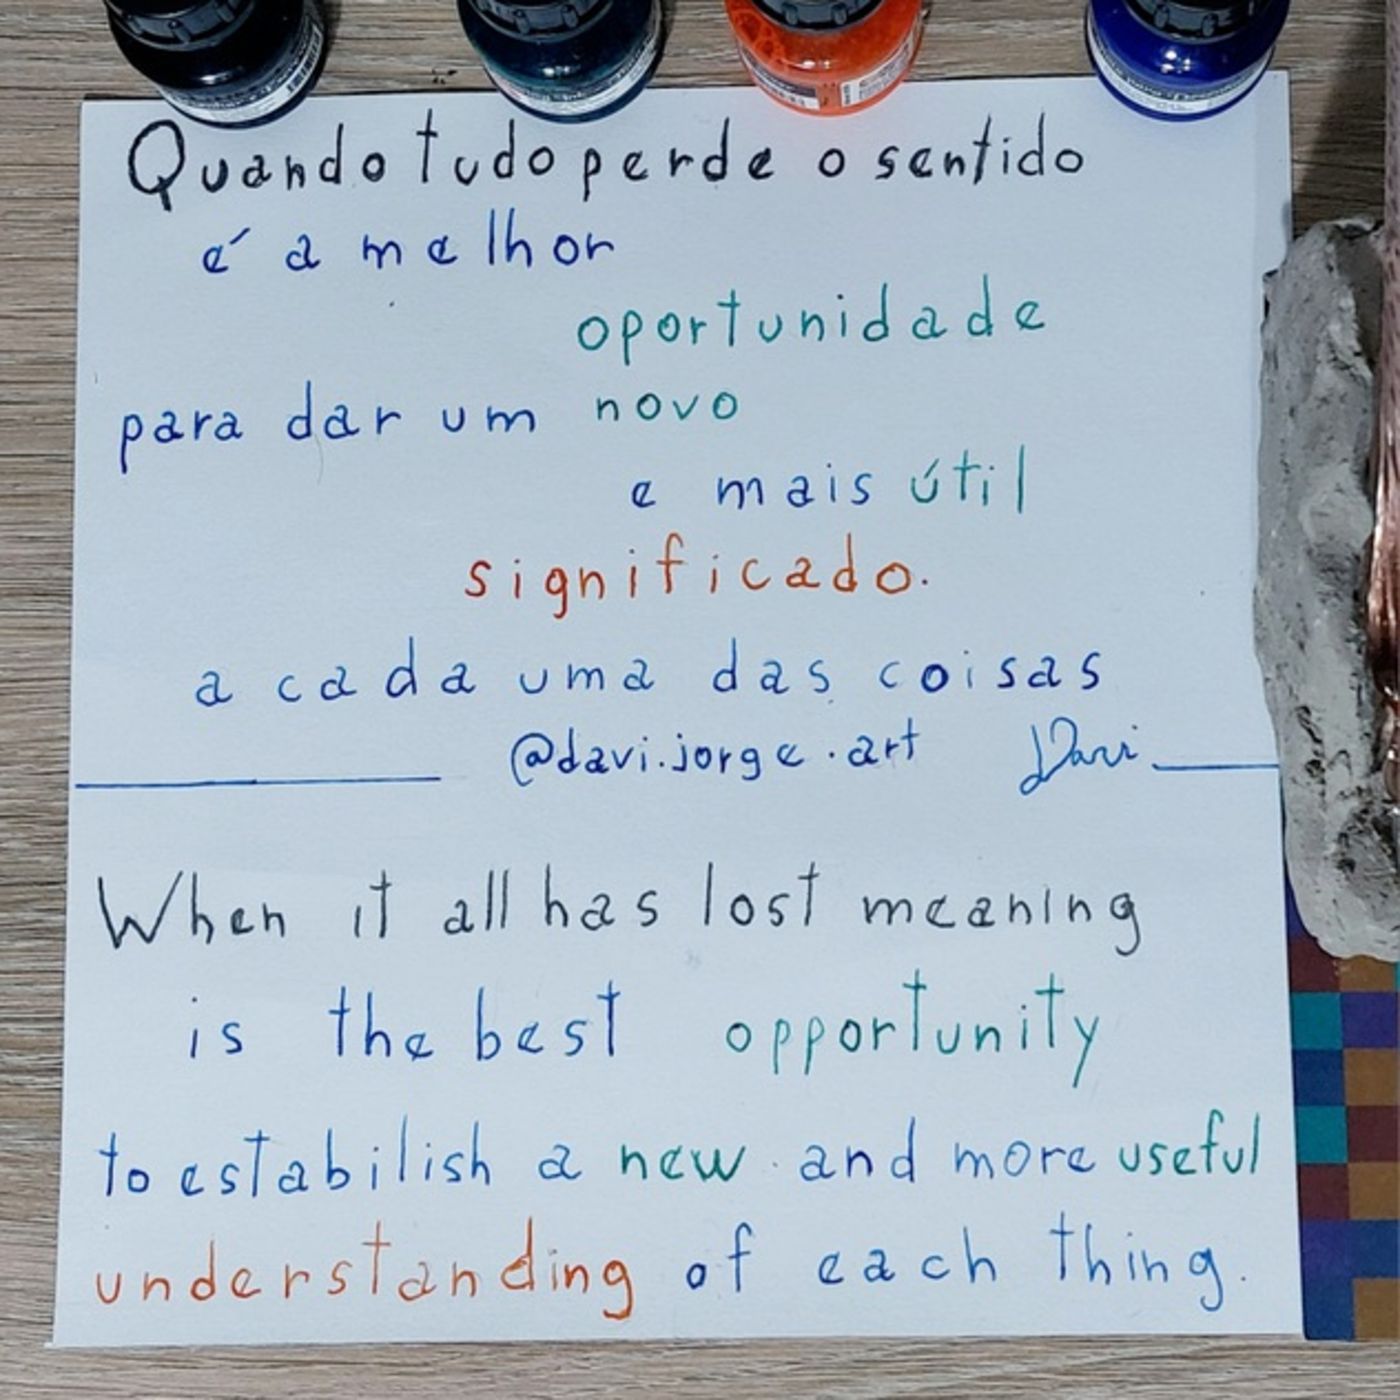 Quando tudo perde o sentido
é a melhor
oportunidade
para dar um novo
e mais útil
significado.
a cada uma das coisas
@davi.jorge.art Davi
When it all has lost meaning
is the best opportunity
to estabilish a new and more useful
understanding of each thing.